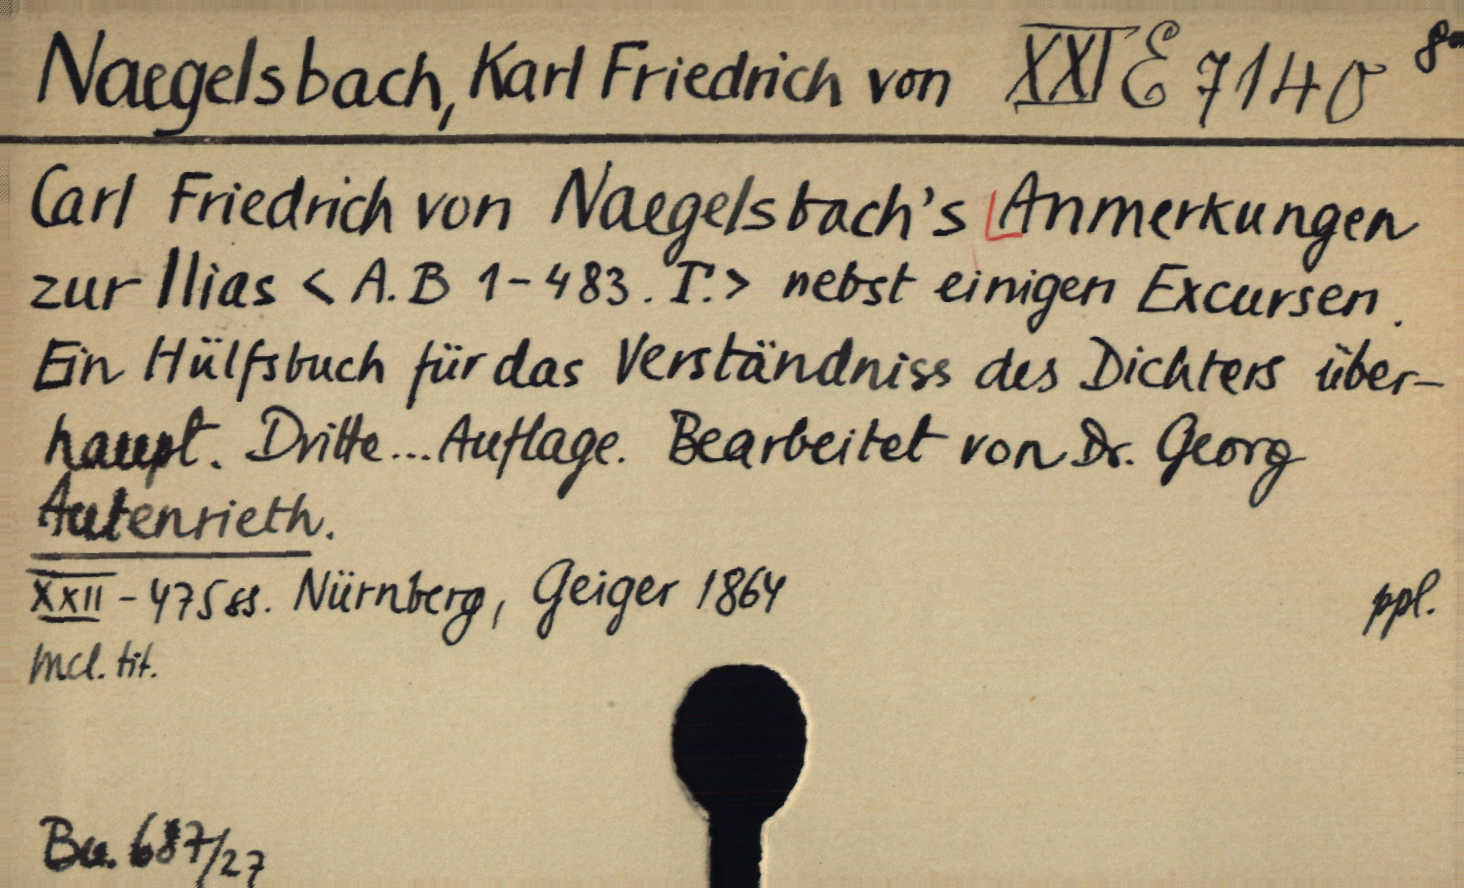 Naegelsbach, Karl Friedrich von XXI E 7140 8°
Carl Friedrich von Naegelsbach's Anmerkungen
zur Ilias < A. B 1-483. Γ. > nebst einigen Excursen.
Ein Hülfsbuch für das Verständniss des Dichters über-
haupt. Dritte... Auflage. Bearbeitet von Dr. Georg
Autenrieth.
XXII - 475 ss. Nürnberg, Geiger 1864 ppl.
Incl. tit.
Bu. 687/27